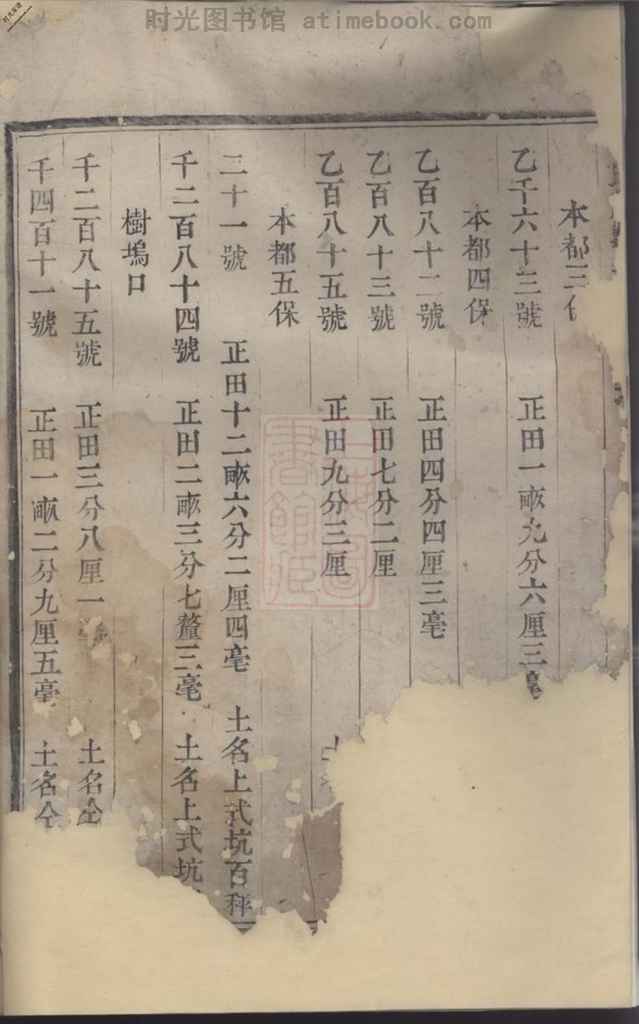 时光图书馆 atimebook.com
本都三保
乙千六十三號 正田一畝九分六厘三毫
本都四保
乙百八十二號 正田四分四厘三毫
乙百八十三號 正田七分二厘
乙百八十五號 正田九分三厘 土名
本都五保
二十一號 正田十二畝六分二厘四毫 土名上式坑百秤
千二百八十四號 正田二畝三分七釐三毫 土名上式坑
樹塢口
千二百八十五號 正田三分八厘一 土名仝
千四百十一號 正田一畝二分九厘五毫 土名仝